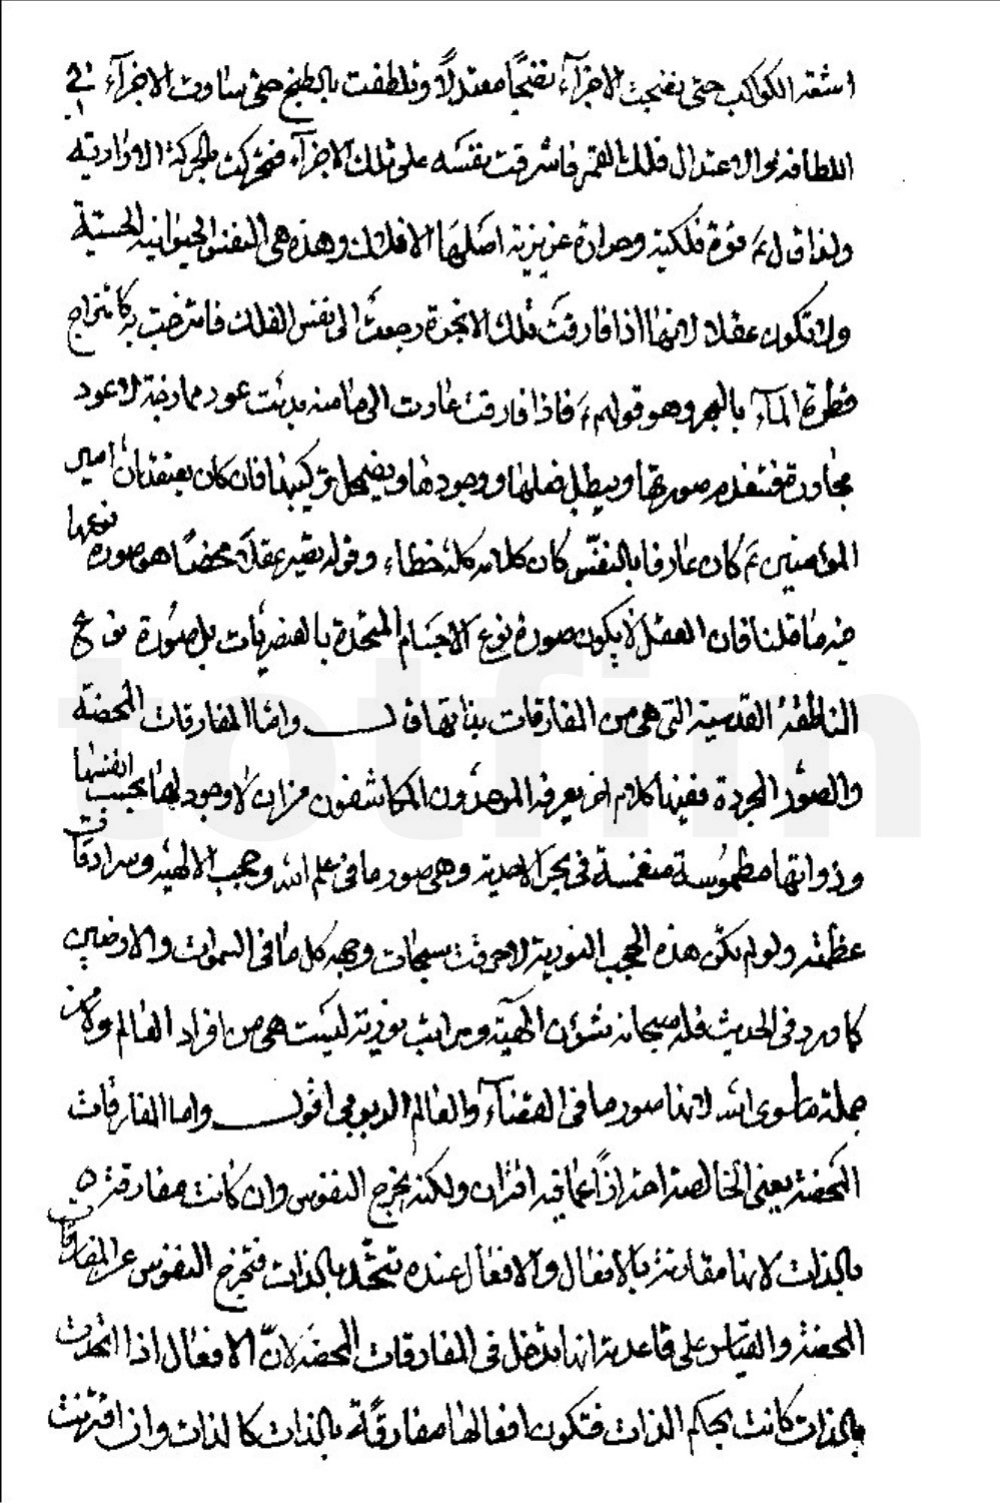 اشعة الكواكب حتى نضجت الاجزآء نضجًا معتدلًا وتلطفت بالطبخ حتى ساوت الاجزآء في
اللطافة والاعتدال فلك القمر فاشرقت نفسه على تلك الاجزآء فتحركت بالحركة الارادية
ولذا قال ع قوة فلكية وحرارة غريزية اصلها الافلاك وهذه هي النفس الحيوانية الحسية
ولا تكون عقلا لانها اذا فارقت تلك الابخرة رجعت الى نفس الفلك فامتزجت به كامتزاج
قطرة المآء بالبحر وهو قوله ع فاذا فارقت عادت الى ما منه بدئت عود ممازجة لا عود
مجاورة فتنعدم صورتها ويبطل فعلها ووجودها ويضمحل تركيبها فان كان يعتقد ان امير
المؤمنين ع كان عارفا بالنفس كان كلامه كله خطاء وقوله تصير عقلا محضًا هو صورة نوعها
فيه ما قلنا فان العقل لا يكون صورة نوع الاجسام المتحدة بالعنصريات بل صورة نوع
الناطقة القدسية التي هي من المفارقات بذاتها قال واما المفارقات المحضة
والصور المجردة ففيها كلام اخر يعرفه الموحدون المكاشفون من ان لا وجود لها بحسب انفسها
وذواتها مطموسة منغمسة في بحر الاحدية وهي صور ما في علم الله وحجب الالهية وسرادقات
عظمته ولو لم تكن هذه الحجب النورية لاحرقت سبحات وجهه كل ما في السموات والارضين
كما ورد في الحديث فله سبحانه شؤن الهية ومراتب نورية ليست هي من افراد العالم ولا من
جملة ما سوى الله لانها صور ما في القضآء والعالم الربوبي اقول واما المفارقات
المحضة يعني الخالصة احترازًا عما فيه اقتران ولكنه يخرج النفوس وان كانت مفارقة
بالذات لانها مقارنة بالافعال والافعال عنده تتحد بالذات فتخرج النفوس عن المفارقات
المحضة والقياس على قاعدته انها تدخل في المفارقات المحضة لان الافعال اذا اتحدت
بالذات كانت بحكم الذات فتكون افعالها مفارقة بالذات كالذات وان اقترنت